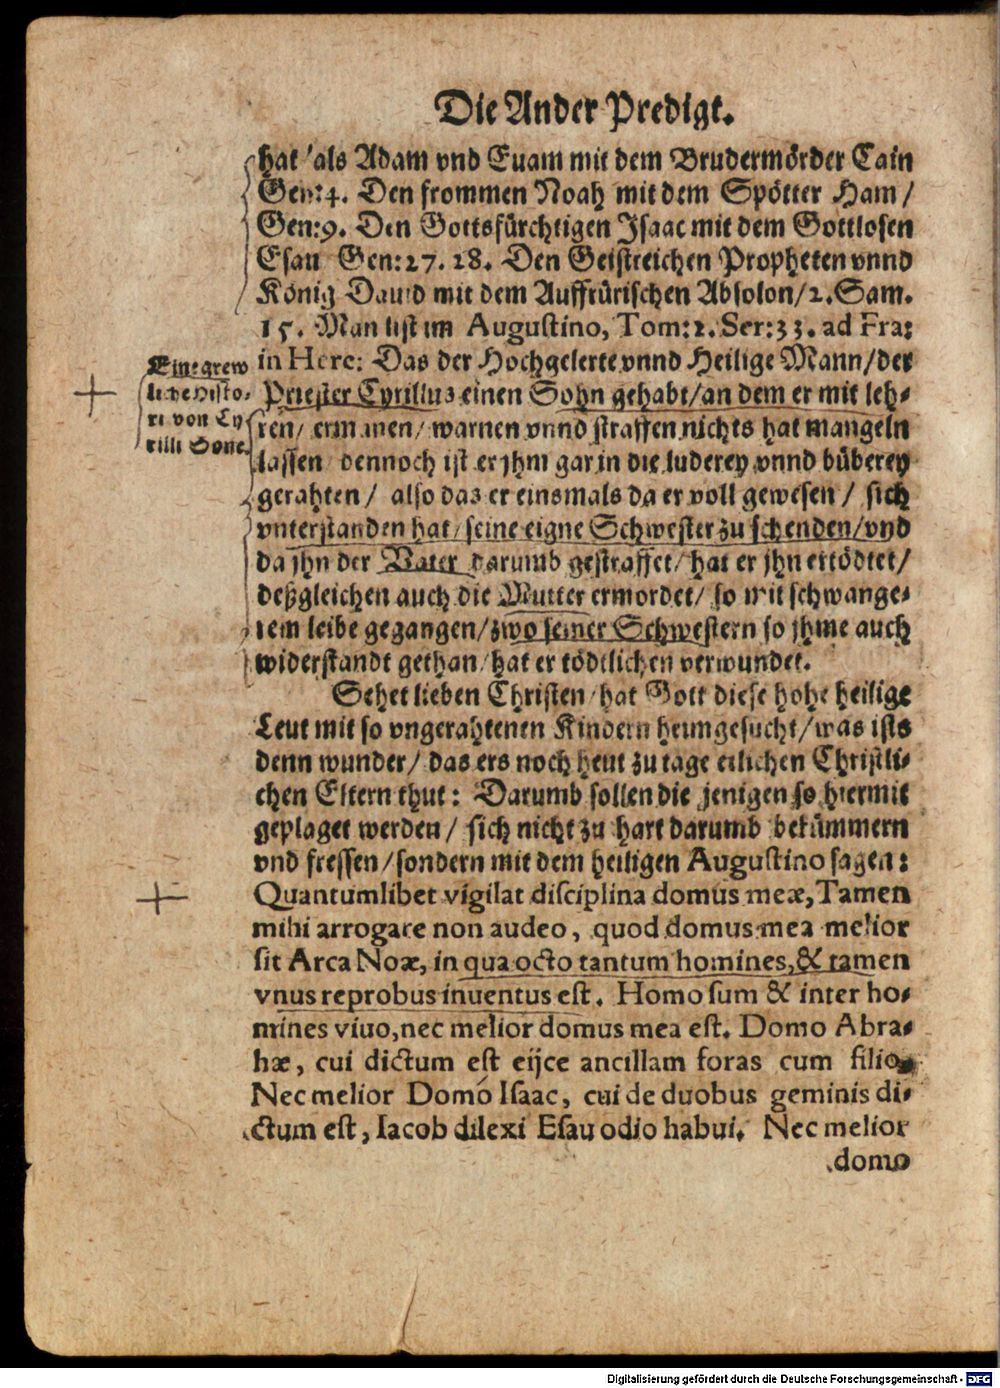 Die Ander Predigt.
hat / als Adam vnd Euam mit dem Brudermörder Cain
Gen:4. Den frommen Noah mit dem Spötter Ham /
Gen:9. Den Gottsfürchtigen Isaac mit dem Gottlosen
Esau Gen:27.28. Den Geistreichen Propheten vnnd
König Dauid mit dem Auffrürischen Absolon/2.Sam.
15. Man list im Augustino, Tom:2. Ser:33. ad Fra:
in Here: Das der Hochgelerte vnnd Heilige Mann/der
Priester Cyrillus einen Sohn gehabt/an dem er mit leh-
ren/ ermanen/ warnen vnnd straffen nichts hat mangeln
lassen dennoch ist er jhm gar in die luderey vnnd büberey
gerahten / also das er einsmals da er voll gewesen / sich
vnterstanden hat/seine eigne Schwester zu schenden/vnd
da jhn der Vater darumb gestraffet/hat er jhn ertödtet/
deßgleichen auch die Mutter ermordet/ so mit schwange-
rem leibe gegangen/zwo seiner Schwestern so jhme auch
widerstandt gethan/hat er tödtlichen verwundet.
Eine grew
liche Histo-
ri von Cy
rilli Sone.
Sehet lieben Christen/hat Gott diese hohe heilige
Leut mit so vngerahtenen Kindern heimgesucht/was ists
denn wunder/ das ers noch heut zu tage etlichen Christli-
chen Eltern thut: Darumb sollen die jenigen so hiermit
geplaget werden/ sich nicht zu hart darumb bekümmern
vnd fressen/sondern mit dem heiligen Augustino sagen:
Quantumlibet vigilat disciplina domus meæ,Tamen
mihi arrogare non audeo, quod domus mea melior
sit Arca Noæ, in qua octo tantum homines,& tamen
vnus reprobus inuentus est. Homo sum & inter ho-
mines viuo,nec melior domus mea est. Domo Abra-
hæ, cui dictum est eijce ancillam foras cum filio
Nec melior Domó Isaac, cui de duobus geminis di-
ctum est, Iacob dilexi Esau odio habui. Nec melior
domo
Digitalisierung gefördert durch die Deutsche Forschungsgemeinschaft - DFG